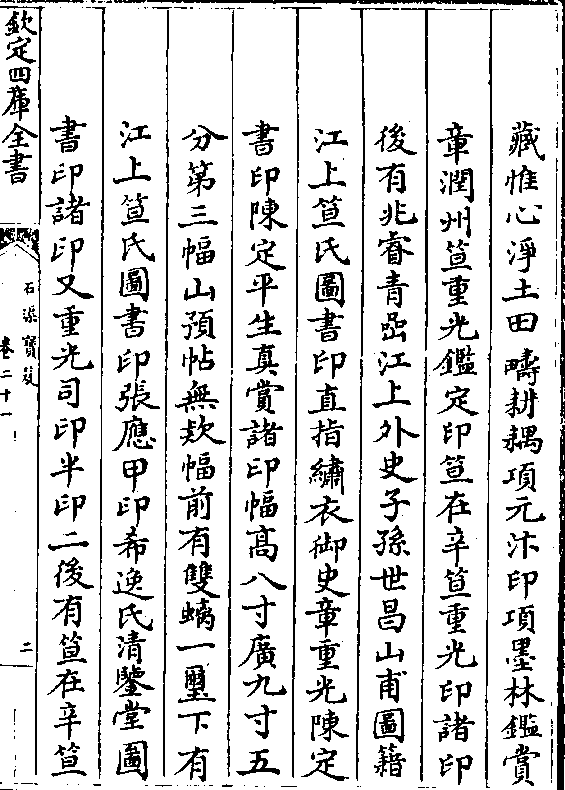 藏惟心淨土田疇耕耦項元汴印項墨林鑑賞
章潤州笪重光鑑定印笪在辛笪重光印諸印
後有兆睿青嵒江上外史子孫世昌山甫圖籍
江上笪氏圖書印直指繡衣御史章重光陳定
書印陳定平生真賞諸印幅高八寸廣九寸五
分第三幅山預帖無欵幅前有雙螭一璽下有
江上笪氏圖書印張應甲印希逸氏清鑒堂圖
書印諸印又重光司印半印二後有笪在辛笪
欽定四庫全書
石渠寶笈
卷二十一
二